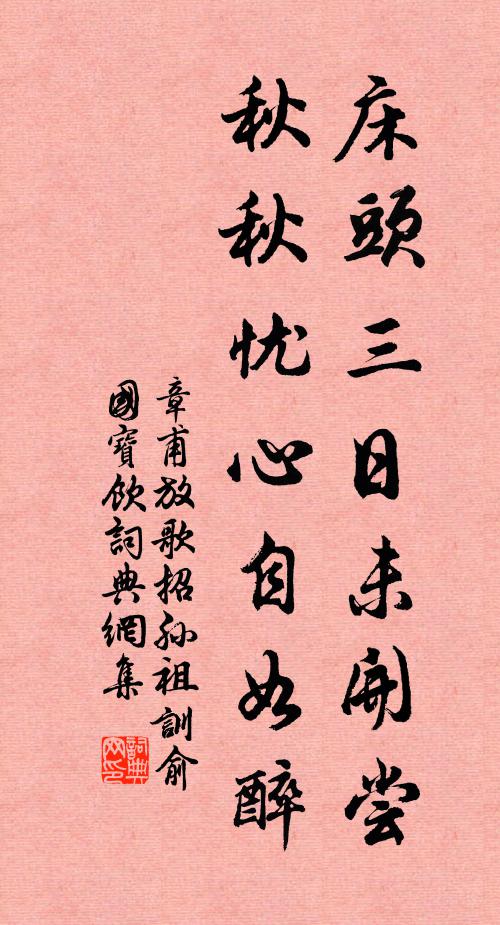 床頭三日未開尝
秋秋忧心自如醉
章甫放歌招孙祖訓俞
國寶飲詞典網集
詞典
网印